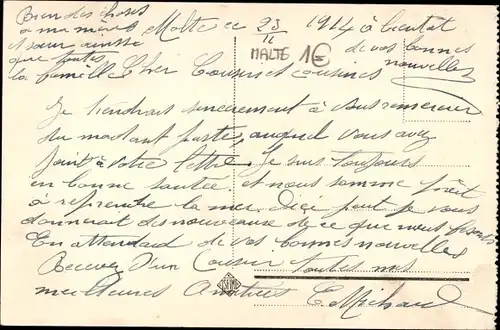 Bien des choses
à ma mère
et sœur aussi
que toutes
la famille
Malte ce 23/11 1914 à bientôt
de vos bonnes
nouvelles
MALTE 1€
Cher Cousin et cousines
Je tiendrais sincèrement à vous remercier
du mandant poste, auquel vous avez
joint à votre lettre. Je suis toujours
en bonne santée et nous somme prêt
à reprendre la mer. Dici peut je vous
donnerait des nouveause de ce que nous
En attendand de vos bonnes nouvelles
Recevez d'un Cousin toutes mes
meilleures Amitiés E Michaud